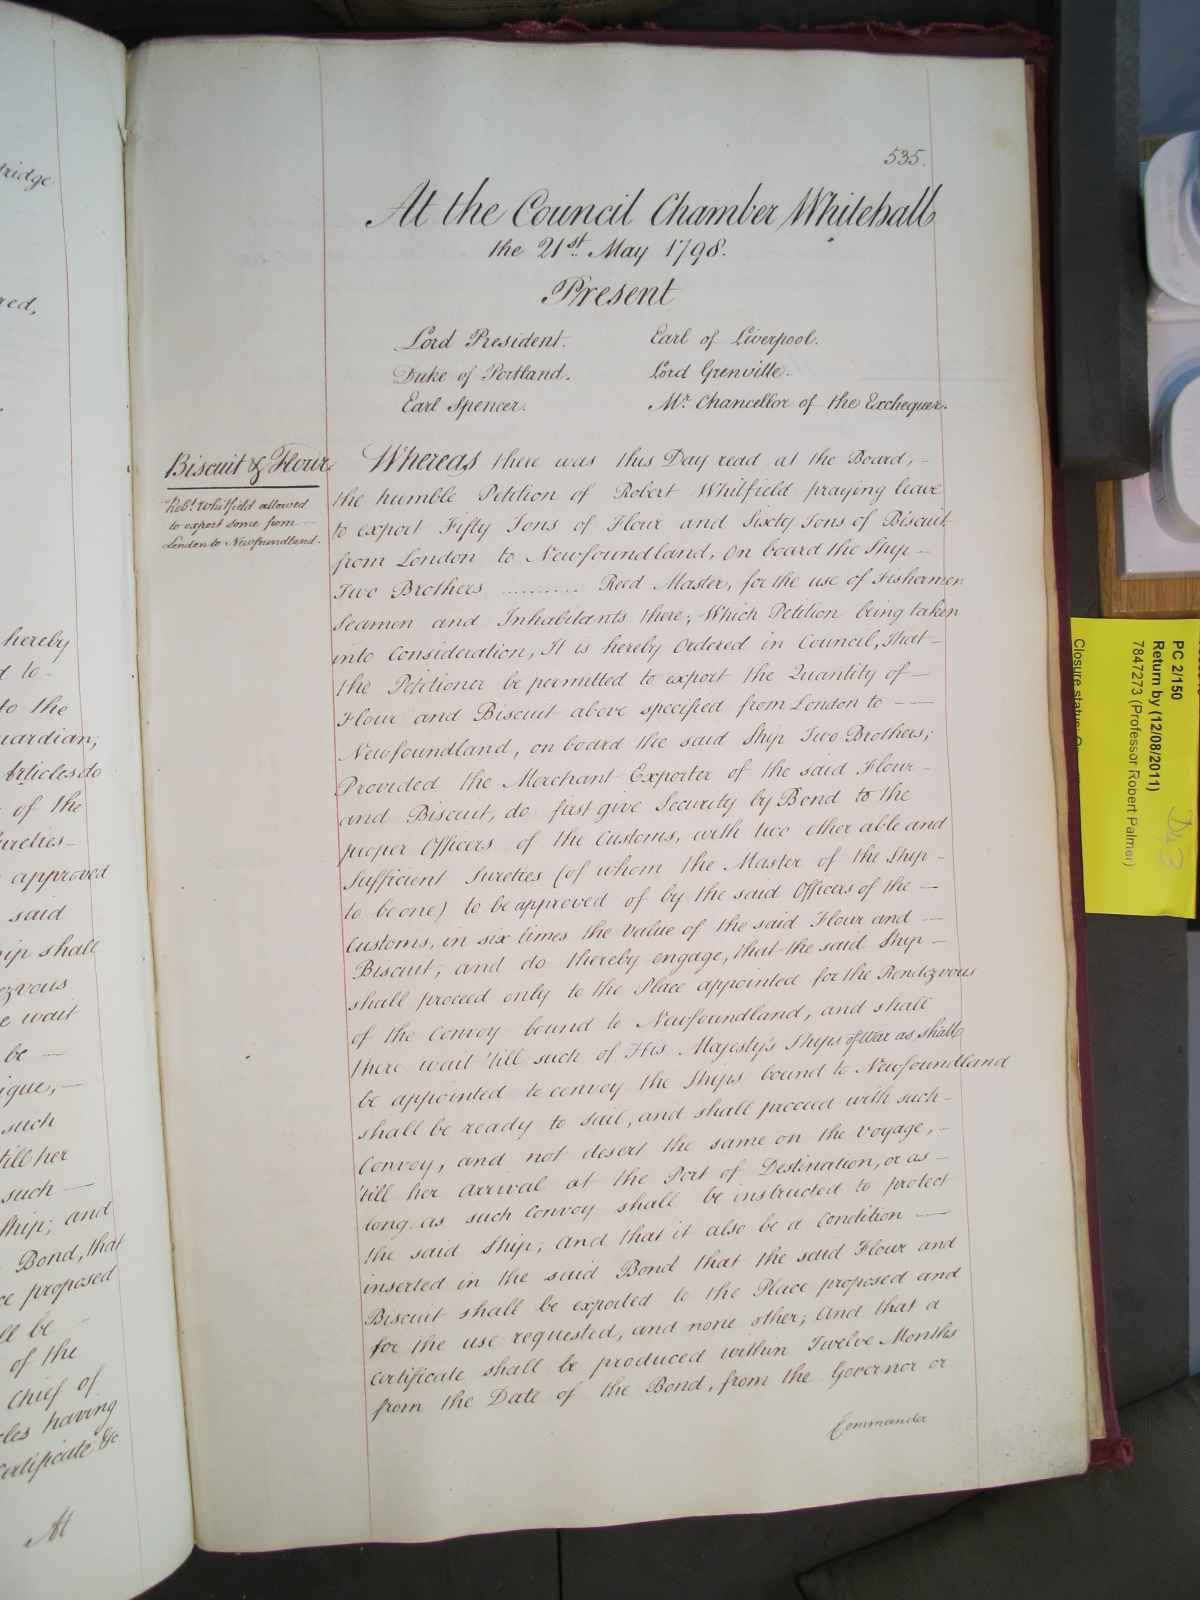 ridge
red,
hereby
d to -
to the
uardian;
Articles do
of the
ureties -
approved
said
ip shall
ezvous
e wait
be —
ique, —
such
till her
such —
Ship; and
Bond, that
ce proposed
ll be -
of the
Chief of
cles having
Certificate &c
At
535.
At the Council Chamber Whitehall
the 21st. May 1798.
Present
Lord President. Earl of Liverpool.
Duke of Portland. Lord Grenville.
Earl Spencer. Mr. Chancellor of the Exchequer.
Biscuit & Flour
Robt. Whitfield allowed
to export some from —
London to Newfoundland.
Whereas there was this Day read at the Board, -
the humble Petition of Robert Whitfield praying leave
to export Fifty Tons of Flour and Sixty Tons of Biscuit
from London to Newfoundland, on board the Ship —
Two Brothers .......... Reed Master, for the use of Fishermen
Seamen and Inhabitants there; Which Petition being taken
into Consideration, It is hereby Ordered in Council, that —
the Petitioner be permitted to export the Quantity of —
Flour and Biscuit above specified from London to — —
Newfoundland, on board the said Ship Two Brothers;
Provided the Merchant Exporter of the said Flour -
and Biscuit, do first give Security by Bond to the
proper Officers of the Customs, with two other able and
Sufficient Sureties (of whom the Master of the Ship -
to be one) to be approved of by the said Officers of the —
Customs, in six times the value of the said Flour and —
Biscuit; and do thereby engage, that the said Ship —
shall proceed only to the Place appointed for the Rendezvous
of the Convoy bound to Newfoundland, and shall
there wait 'till such of His Majesty's Ships of War as shall
be appointed to convoy the Ships bound to Newfoundland
shall be ready to sail, and shall proceed with such -
Convoy, and not desert the same on the voyage, -
'till her arrival at the Port of Destination, or as —
long as such Convoy shall be instructed to protect
the said Ship; And that it also be a Condition —
inserted in the said Bond that the said Flour and
Biscuit shall be exported to the Place proposed and
for the use requested, and none other; And that a
Certificate shall be produced within Twelve Months
from the Date of the Bond, from the Governor or
Commander
PC 2/150
Return by (12/08/2011)
7847273 (Professor Robert Palmer)
Closure status: